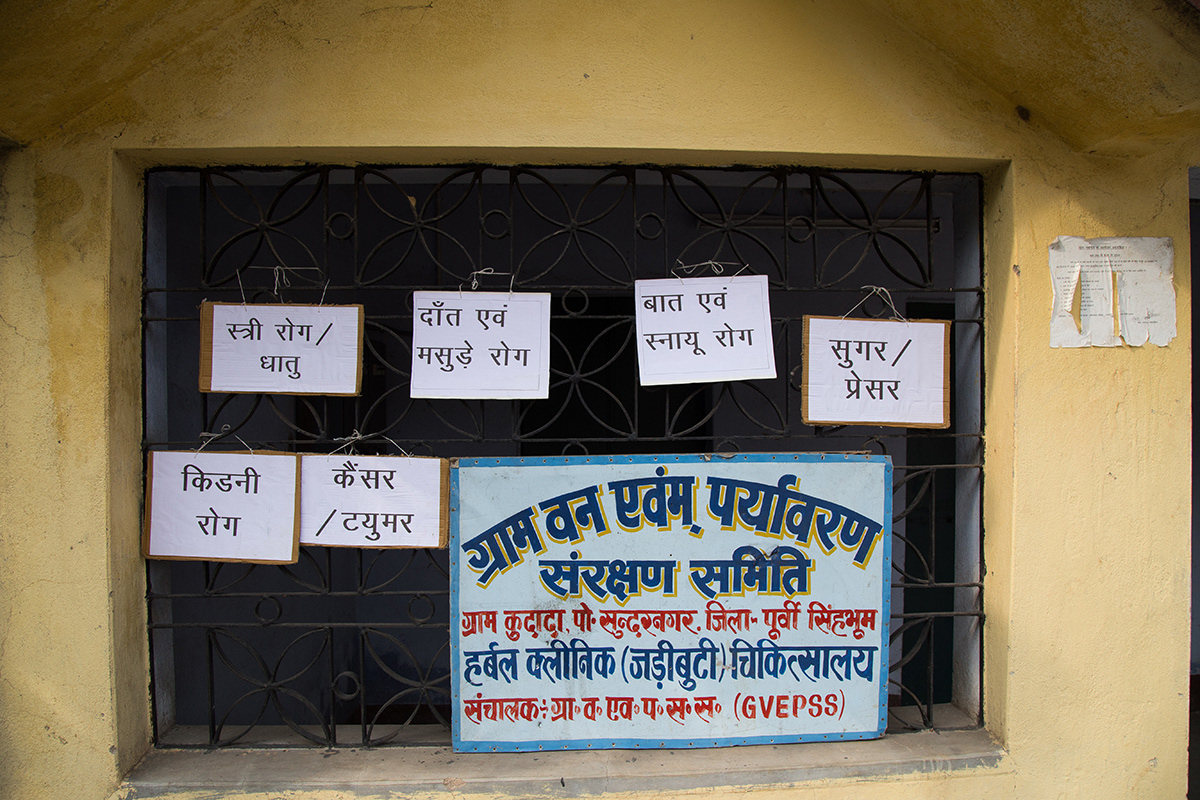 स्त्री रोग /
धातु
दाँत एवं
मसुड़े रोग
बात एवं
स्नायू रोग
सुगर /
प्रेसर
किडनी
रोग
कैंसर
/टयुमर
ग्राम वन एवंम् पर्यावरण
संरक्षण समिति
ग्राम कुदादा, पो॰ सुन्दरनगर, जिला- पूर्वी सिंहभूम
हर्बल क्लीनिक (जड़ीबुटी) चिकित्सालय
संचालक:- ग्रा॰ व॰ एव॰ प॰ स॰ स॰ (GVEPSS)